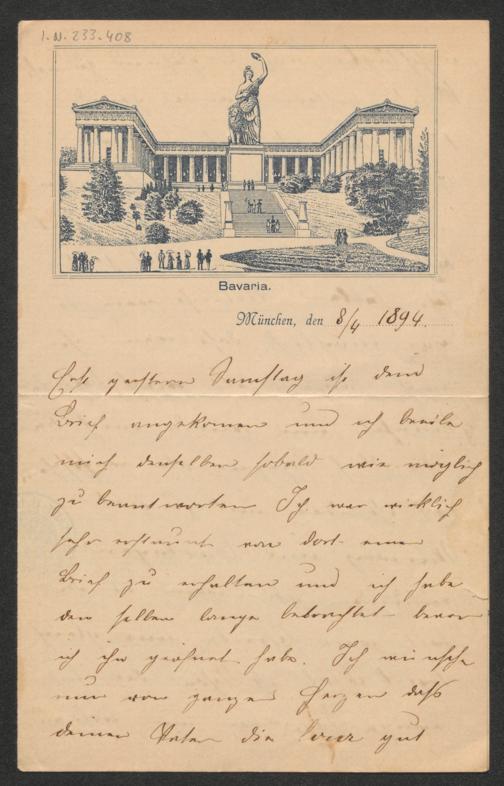 I.N. 233.408
Bavaria.
München, den 8/4 1894.
Erst gestern Samstag ist dein
Brief angekomen und ich beeile
mich denselben sobald wie möglich
zu beantworten. Ich war wirklich
sehr erstaunt von dort einen
Brief zu erhalten und ich habe
den selben lange betrachtet bevor
ich ihn geöfnet habe. Ich wünsche
nur von ganzen Herzen daß
deinen Vater die gut